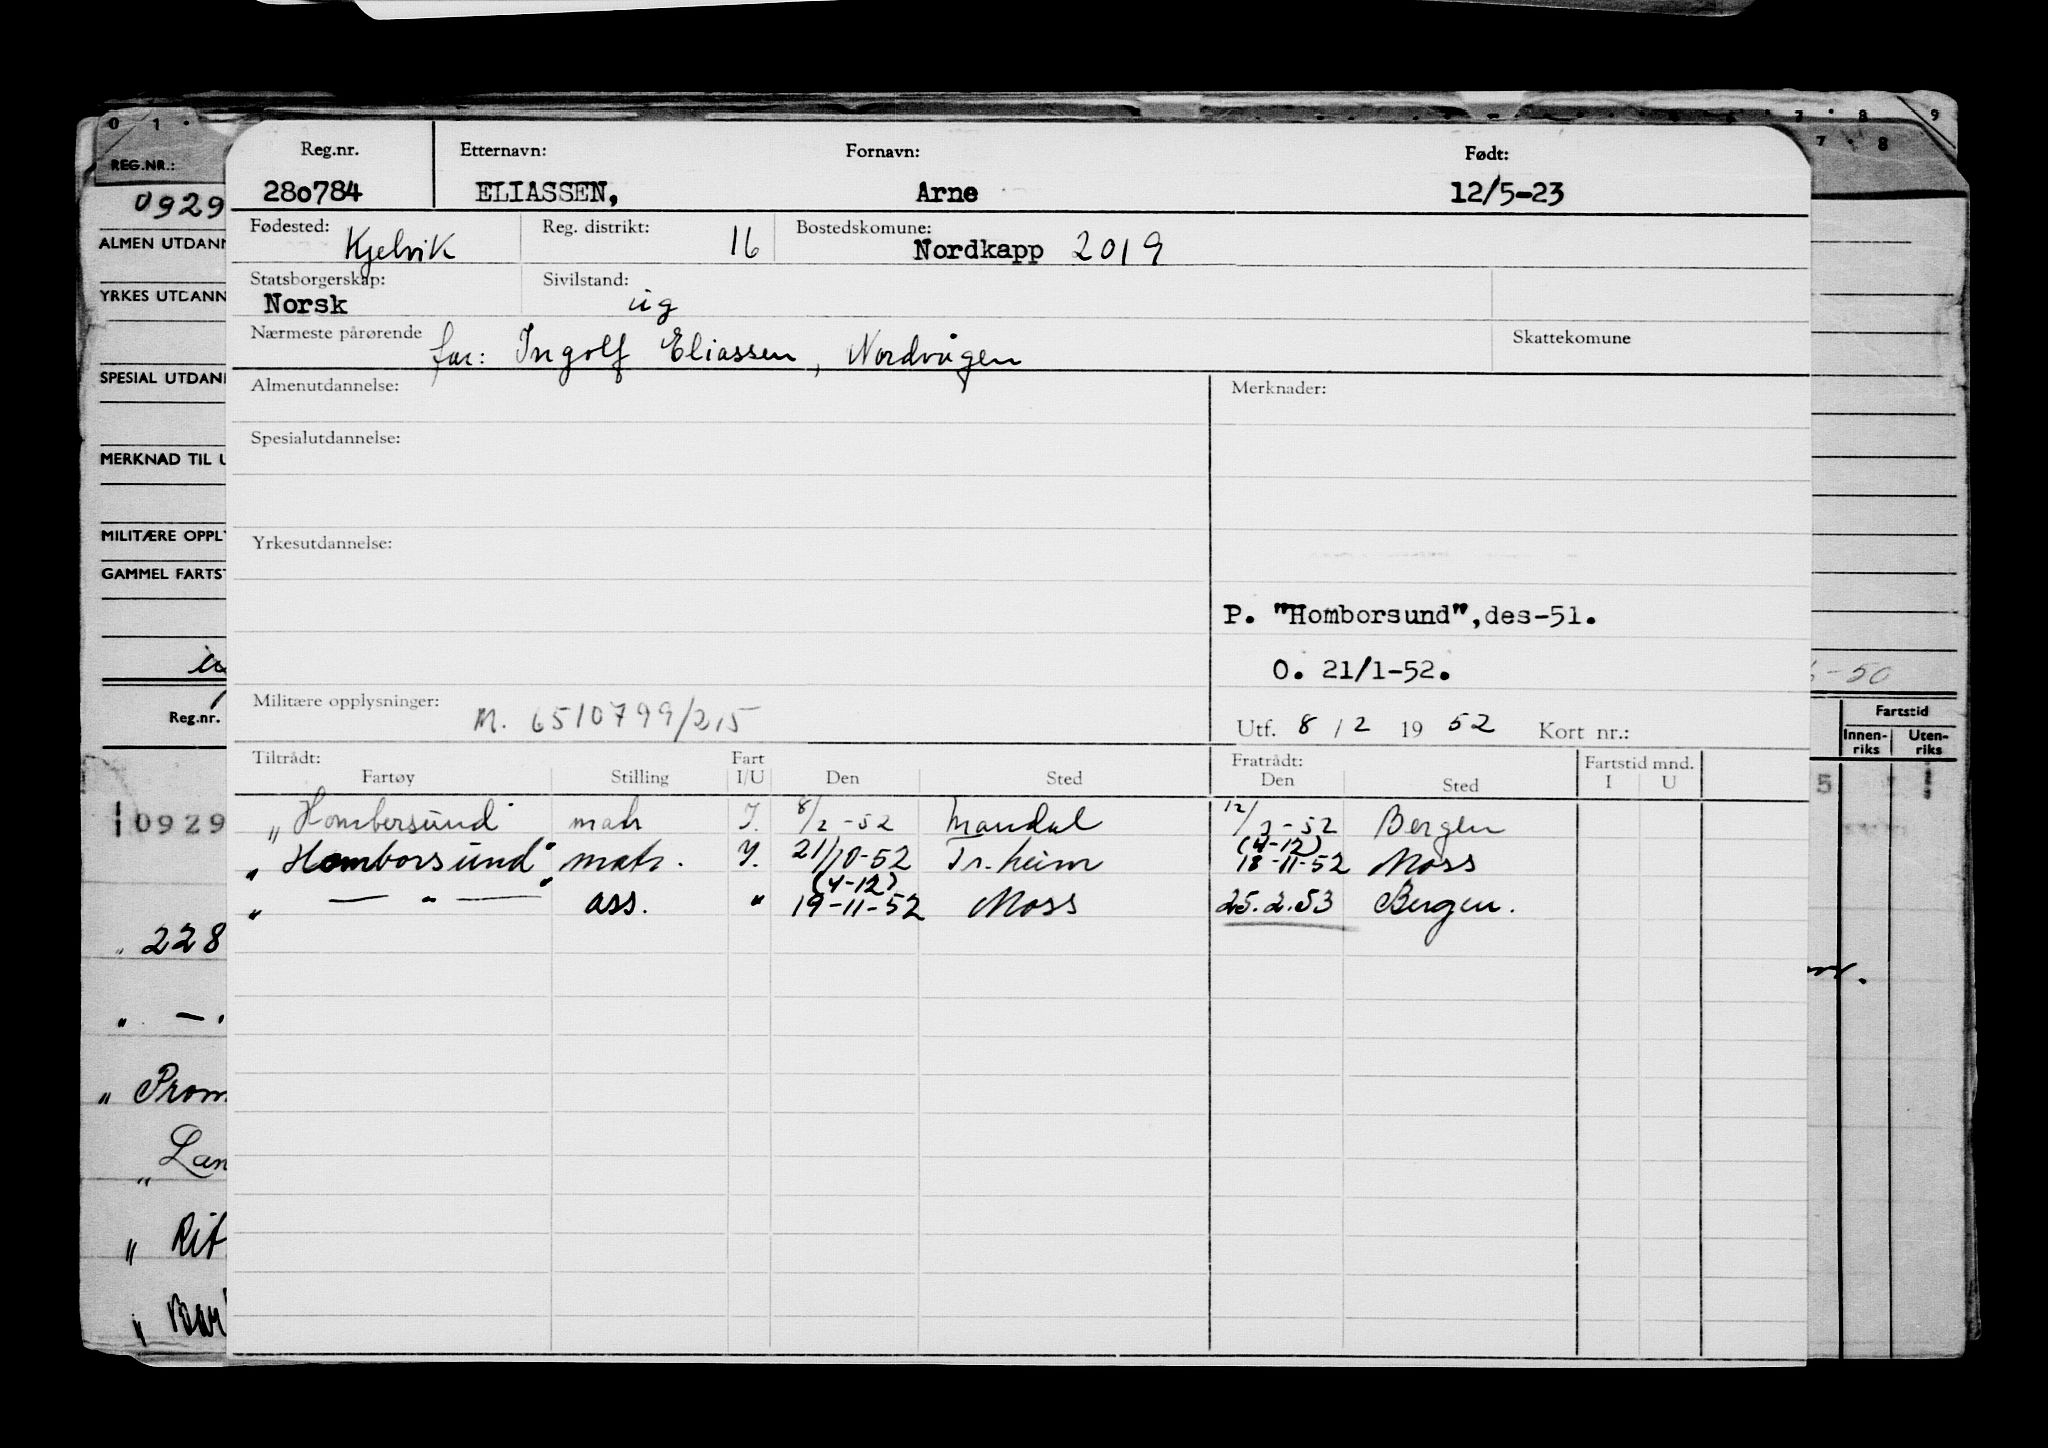 0 1 · 7 · 8 9
REG.NR.: 7 · 8
0929
ALMEN UTDANN
YRKES UTDANN
SPESIAL UTDANN
MERKNAD TIL U
MILITÆRE OPPLY
GAMMEL FARTST
Reg.nr.
0929
„ 228
„ — „
„ Prom
„ Lan
„ Rit
Reg.nr. Etternavn: Fornavn: Født:
280784 ELIASSEN, Arne 12/5-23
Fødested: Kjelvik Reg. distrikt: 16 Bostedskomune: Nordkapp 2019
Statsborgerskap: Norsk Sivilstand: ug
Nærmeste pårørende far: Ingolf Eliassen, Nordvågen Skattekomune
Almenutdannelse: Merknader:
Spesialutdannelse:
Yrkesutdannelse:
P. "Homborsund",des-51.
O. 21/1-52.
Militære opplysninger: M. 6510799/215
Utf. 8 / 2 19 52 Kort nr.:
Tiltrådt: Fart Fratrådt: Fartstid mnd.
Fartøy Stilling I/U Den Sted Den Sted I U
„ Hombersund" matr I. 8/2-52 Mandal 12/3-52 Bergen
„ Homborsund" matr. I. 21/10-52 Tr.heim (4-12) 18-11-52 Moss
„ — " — " ass. " (4-12) 19-11-52 Moss 25.2.53 Bergen.
-50
Fartstid
Innen-riks Uten-riks
5